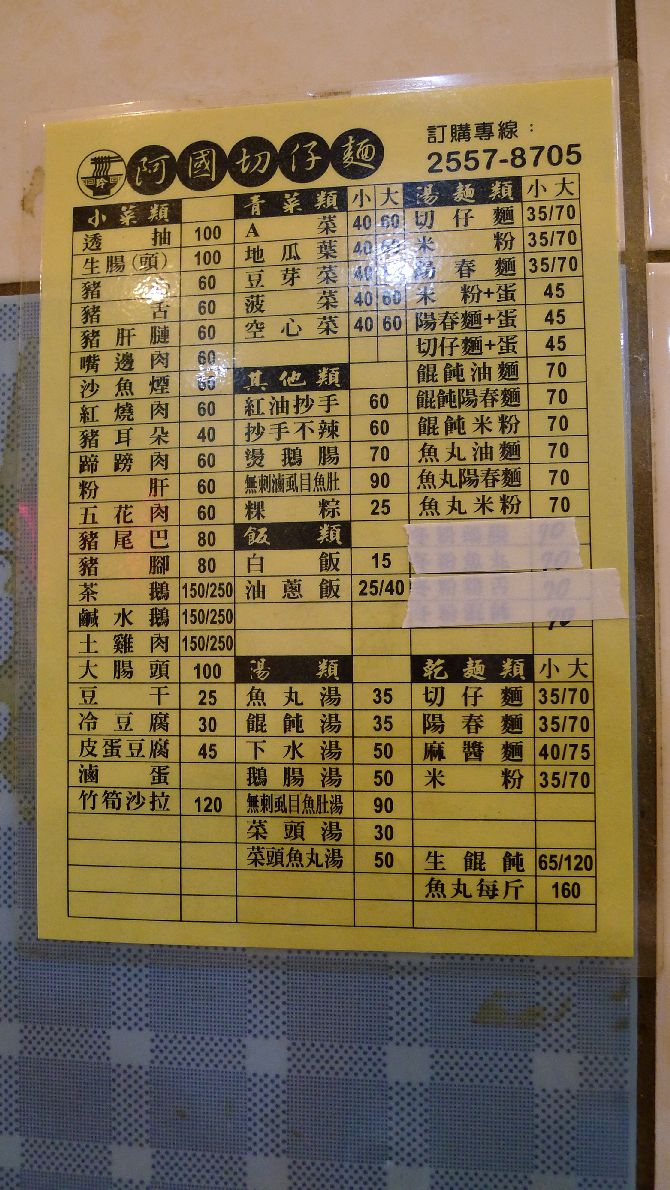 阿國切仔麵
訂購專線：
2557-8705
小菜類
透抽 100
生腸(頭) 100
豬 60
豬舌 60
豬肝腱 60
嘴邊肉 60
沙魚煙 60
紅燒肉 60
豬耳朵 40
蹄膀肉 60
粉肝 60
五花肉 60
豬尾巴 80
豬腳 80
茶鵝 150/250
鹹水鵝 150/250
土雞肉 150/250
大腸頭 100
豆干 25
冷豆腐 30
皮蛋豆腐 45
滷蛋
竹筍沙拉 120
青菜類 小 大
A菜 40 60
地瓜葉 40 60
豆芽菜 40
菠菜 40 60
空心菜 40 60
其他類
紅油抄手 60
抄手不辣 60
燙鵝腸 70
無刺滷虱目魚肚 90
粿粽 25
飯類
白飯 15
油蔥飯 25/40
湯類
魚丸湯 35
餛飩湯 35
下水湯 50
鵝腸湯 50
無刺虱目魚肚湯 90
菜頭湯 30
菜頭魚丸湯 50
湯麵類 小 大
切仔麵 35/70
米粉 35/70
陽春麵 35/70
米粉+蛋 45
陽春麵+蛋 45
切仔麵+蛋 45
餛飩油麵 70
餛飩陽春麵 70
餛飩米粉 70
魚丸油麵 70
魚丸陽春麵 70
魚丸米粉 70
乾麵類 小 大
切仔麵 35/70
陽春麵 35/70
麻醬麵 40/75
米粉 35/70
生餛飩 65/120
魚丸每斤 160